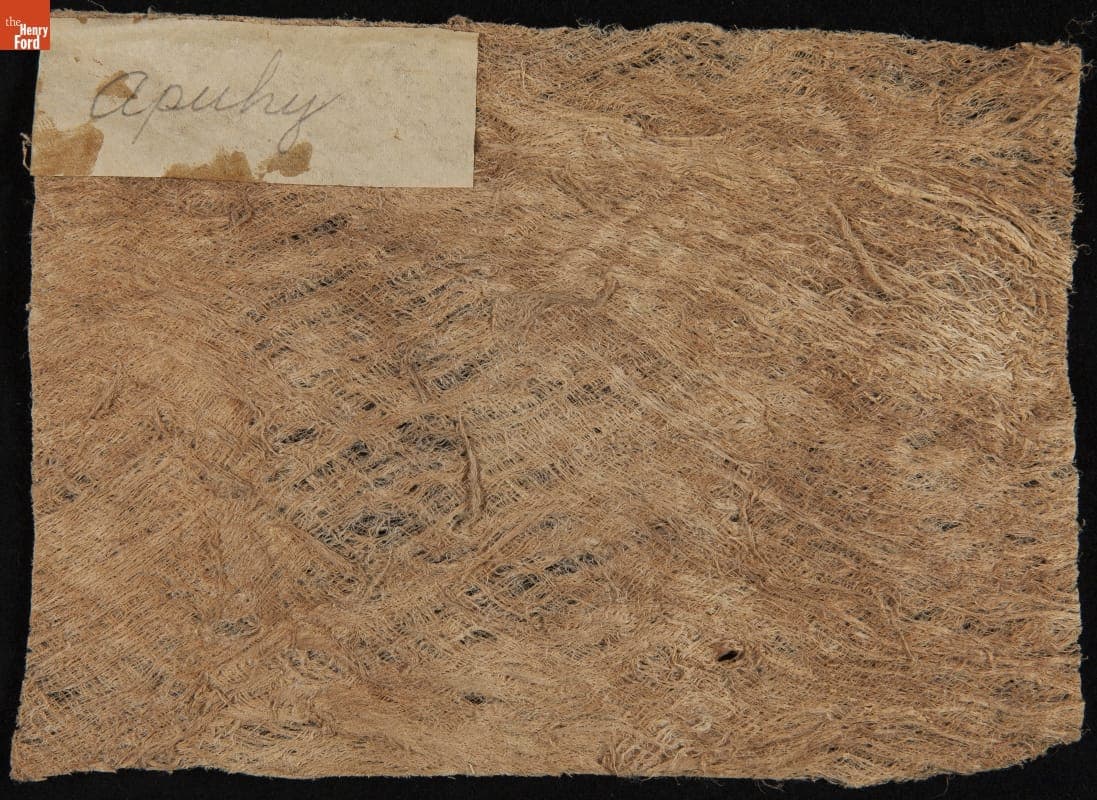 the
Henry
Ford
Apuhy